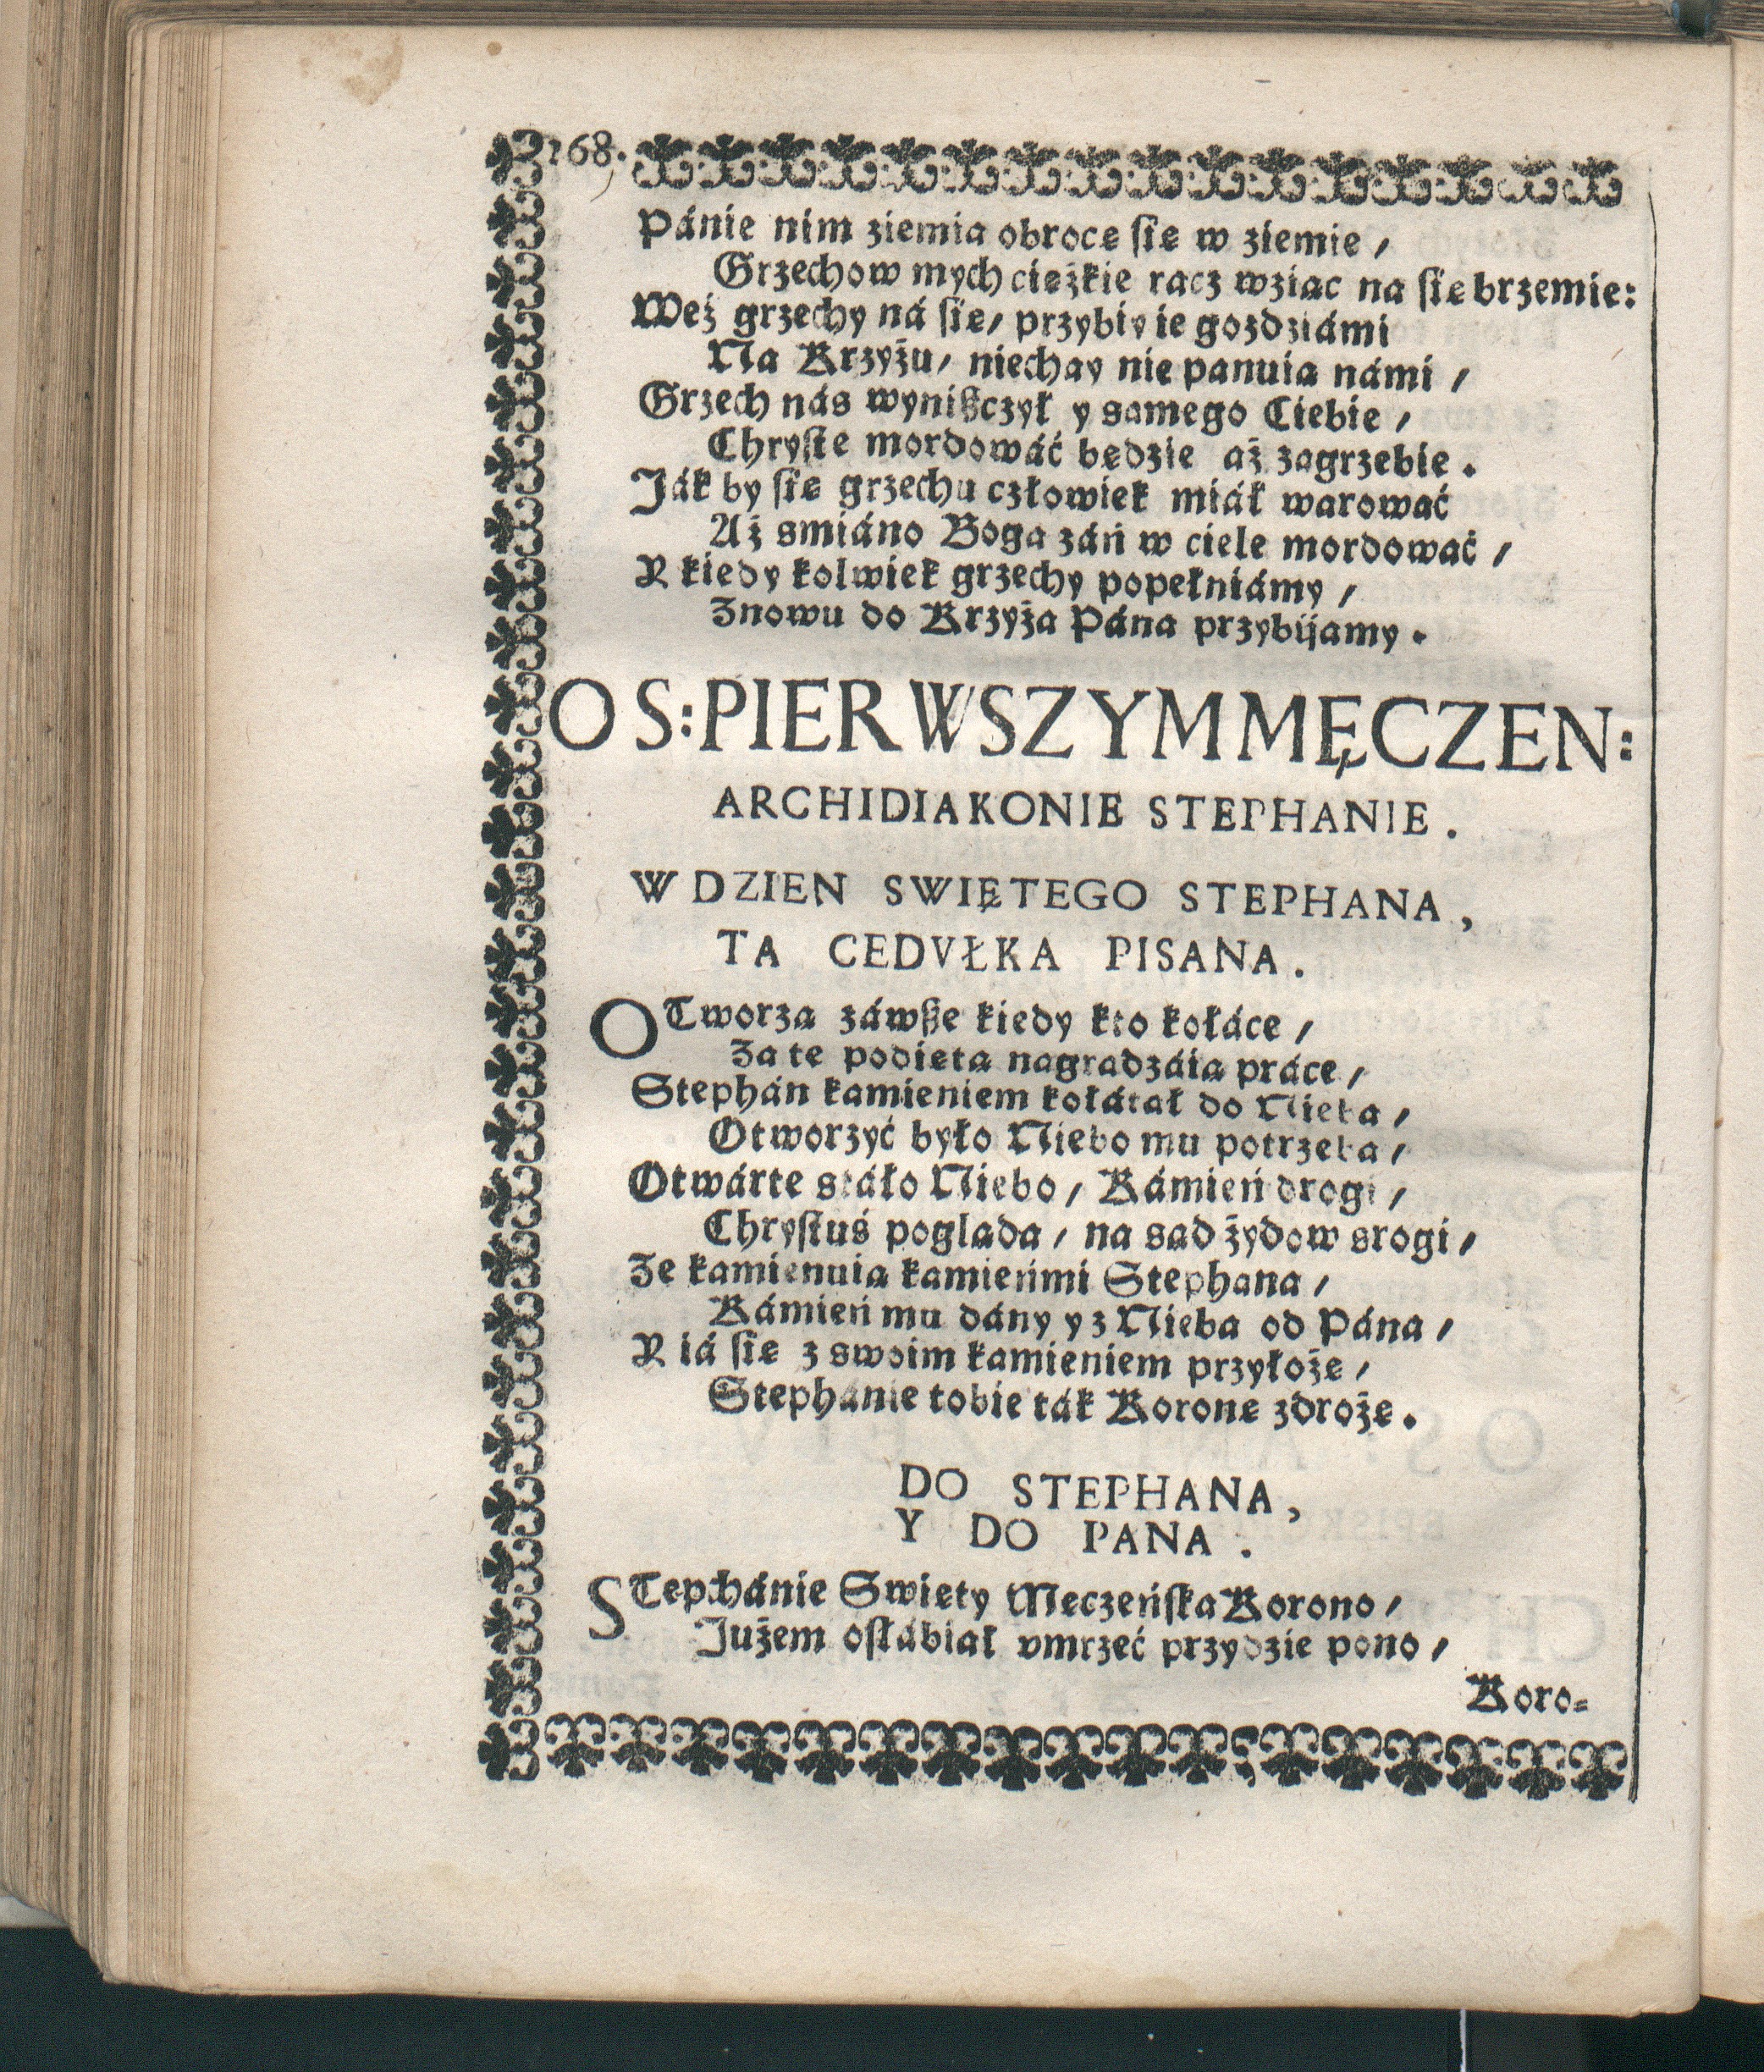 168.
Pánie nim ziemia obrocę się w ziemię /
Grzechow mych ciężkie racz wziąc na się brzemie:
Weź grzechy ná się / przybiy ie gozdziámi
Na Krzyżu / niechay nie panuią námi /
Grzech nás wynißczył y samego Ciebie /
Chryste mordowáć będzie aż zagrzebie.
Ják by się grzechu człowiek miáł warowáć
Aż smiáno Boga záń w ciele mordowáć /
Y kiedy kolwiek grzechy popełniámy /
Znowu do Krzyżá Pána przybijamy.
O S: PIERWSZYM MĘCZEN:
ARCHIDIAKONIE STEPHANIE.
W DZIEN SWIĘTEGO STEPHANA,
TA CEDVŁKA PISANA.
OTworzą záwße kiedy kto kołáce /
Za tę podiętą nagradzáią prácę /
Stephán kamieniem kołátał do Nieba /
Otworzyć było Niebo mu potrzeba /
Otwárte stáło Niebo / Kámień drogi /
Chrystuś pogląda / na sąd żydow srogi /
Ze kamienuią kamieńmi Stephana /
Kámień mu dány y z Nieba od Pána /
Y iá się z swoim kamieniem przyłożę /
Stephánie tobie ták Koronę zdrożę.
DO STEPHANA,
Y DO PANA.
STephánie Swięty Męczeńska Korono /
Jużem osłábiał vmrzeć przydzie pono /
Koro-